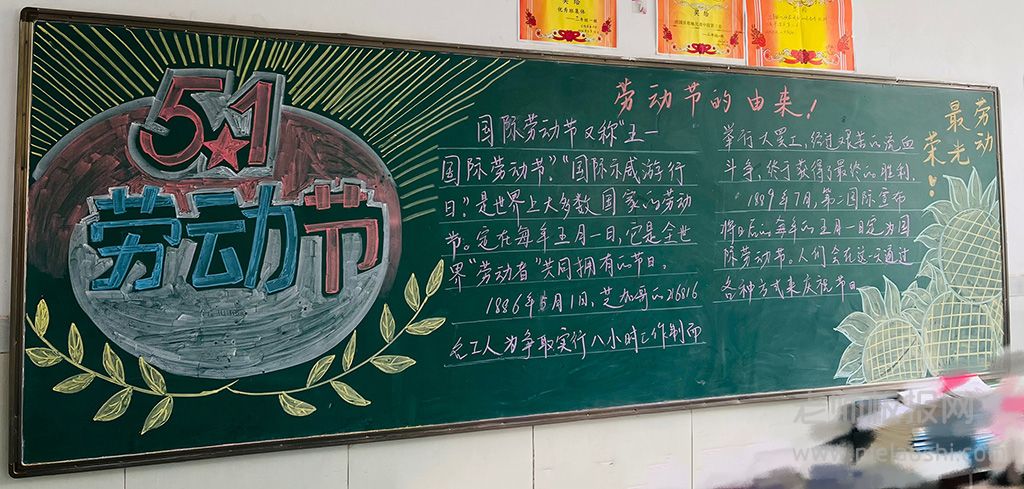 奖给
优秀班集体
奖给
51
劳动节
劳动节的由来!
国际劳动节又称"五一
国际劳动节"."国际示威游行
日".是世界上大多数国家的劳动
节。定在每年五月一日,它是全世
界"劳动者"共同拥有的节日。
1886年5月1日,芝加哥的216816
名工人为争取实行八小时工作制而
举行大罢工,经过艰苦的流血
斗争,终于获得了最终的胜利.
1889年7月,第二国际宣布
将日后的每年的五月一日定为国
际劳动节。人们会在这一天通过
各种方式来庆祝节日
劳动
最光荣
老师板报网